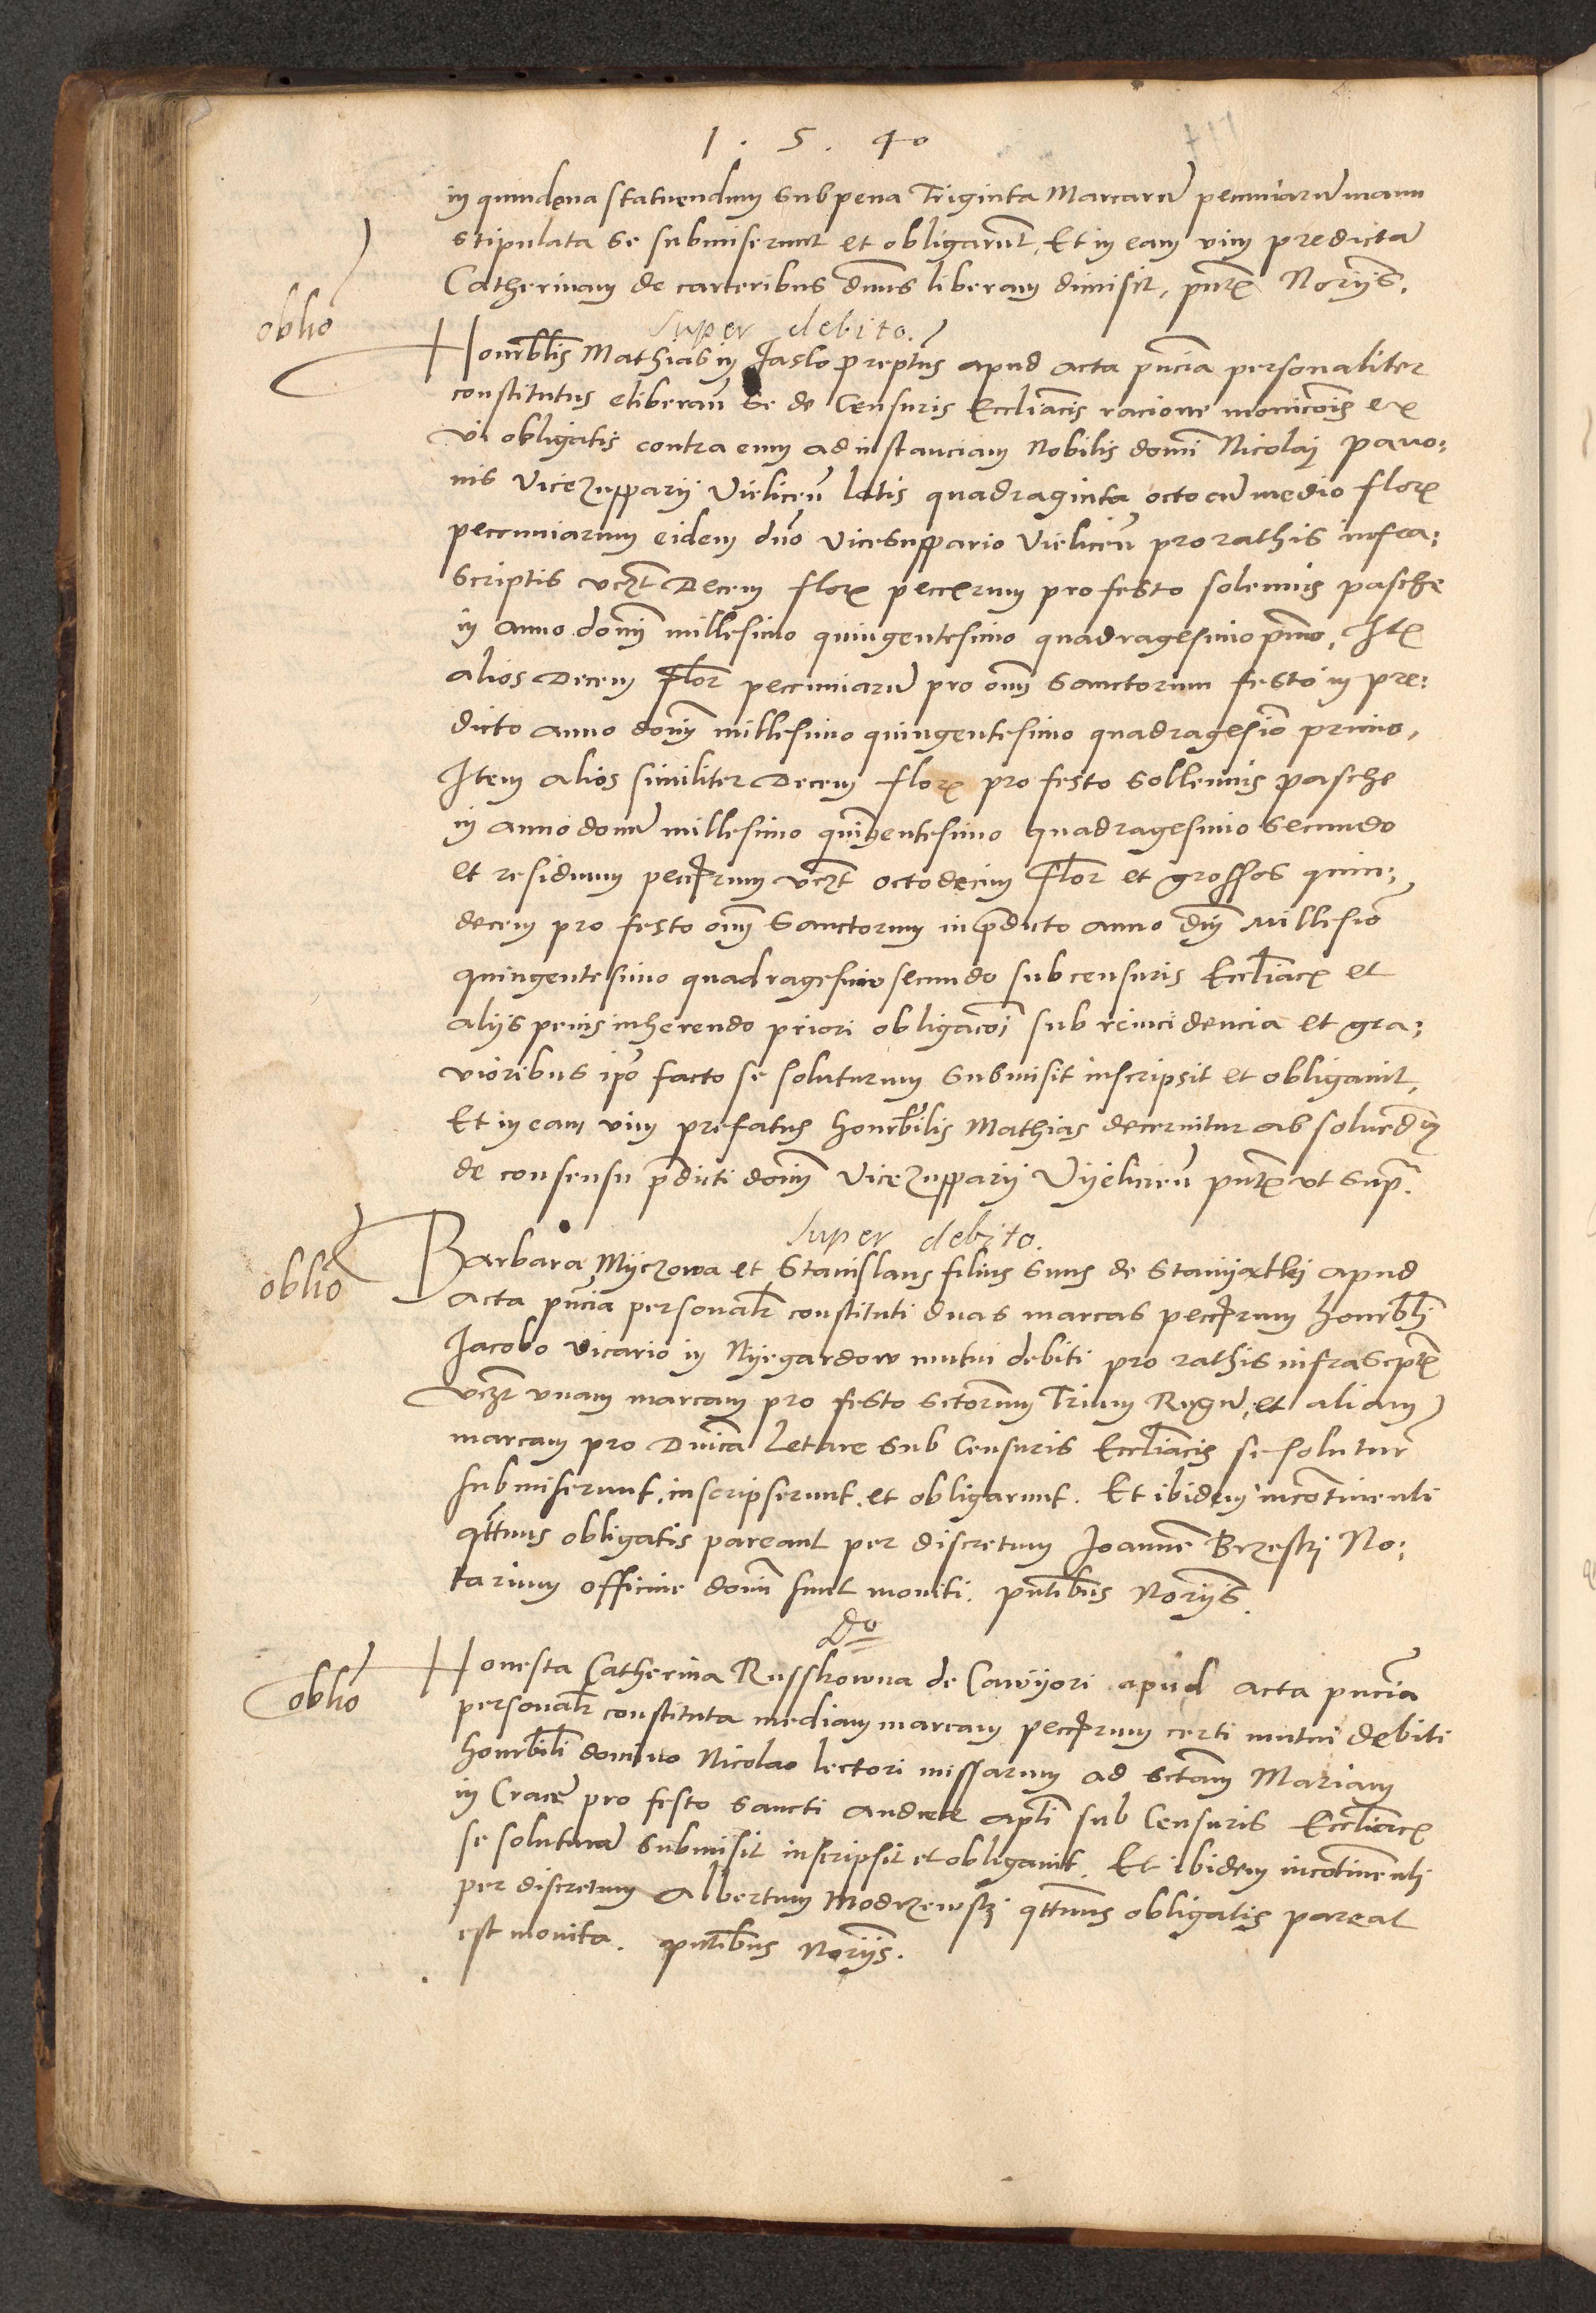 1 . 5 . 40
in quindena statuendum sub pena Triginta Marcarũ pecuniarũ manu
stipulata se submiserunt et obligarũt, Et in eam vim predictã
Catherinam de carceribus dñus liberam dimisit, pñtẽ Noriis.
oblio
super debito.
Honrblis Mathias in Jaslo preptus apud acta pñcia personaliter
constitutus eliberañ se de Censuris Eccliacis racione monicõis ex
vi obligatis contra eum ad instanciam Nobilis domi Nicolai pauo:
nis Vicezupparii Vieliceñ latis quadraginta octo cũ medio florẽ
peccuniarum eidem dño Vicesuppario Vieliceñ pro rathis infra:
scriptis vczt Decem florẽ peccrum pro festo solemnis pasche
in anno domi millesimo quingentesimo quadragesimo primo, Itẽ
alios Decem Flor peccuniarũ pro om̃ Sanctorum festo in pre:
dicto anno domi millesimo quingentesimo quadragesio primo,
Item alios similiter Decem florẽ pro festo sollemnis pasche
in anno domi millesimo quingentesimo quadragesimo secundo
et residuum peccrum vczt octodecim Flor et grossos quin:
decem pro festo om̃ Sanctorum in pdicto anno dm̃i Millesio
quingentesimo quadragesimo secundo sub censuris Eccliacẽ et
aliis penis inherendo priori obligacõi sub reincidencia et gra:
vioribus ipo facto se soluturum submisit inscripsit et obligauit,
Et in eam vim prefatus honrbilis Mathias decernitur absoluedũ
de consensu pdicti domi Vicezupparii Vyelicieñ pñtẽ vt supã.
oblio
super debito.
Barbara Myczowa et Stanislaus filius suus de Staniathki apud
acta pñcia personalr constituti duas marcas peccrum honrbli
Jacobo vicario in Nyegardow mutui debiti pro rathis infrascptẽ
vczt vnam marcam pro festo sctorum Trium Regũ, et aliam
marcam pro Dnica Letare sub Censuris Eccliacis se solutur
submiserunt, inscripserunt. et obligarunt. Et ibidem incõtinenti
qttnus obligatis pareant per discretum Joannẽ Brzeski No:
tarium officine domi sunt moniti. pñtibus Noriis.
oblio
Do
Honesta Catherina Russkowna de Cawyori apud acta pñcia
personalr constituta mediam marcam peccrum certi mutui debiti
honrbili domino Nicolao lectori missarum ad sctam Mariam
in Cracẽ pro festo sancti Andree apli sub Censuris Eccliacẽ
se soluturã submisit inscripsit et obligauit. Et ibidem incõtinẽti
per discretum Albertum Modrzewski qttnus obligatis pareat
est monita. pñtibus Noriis.